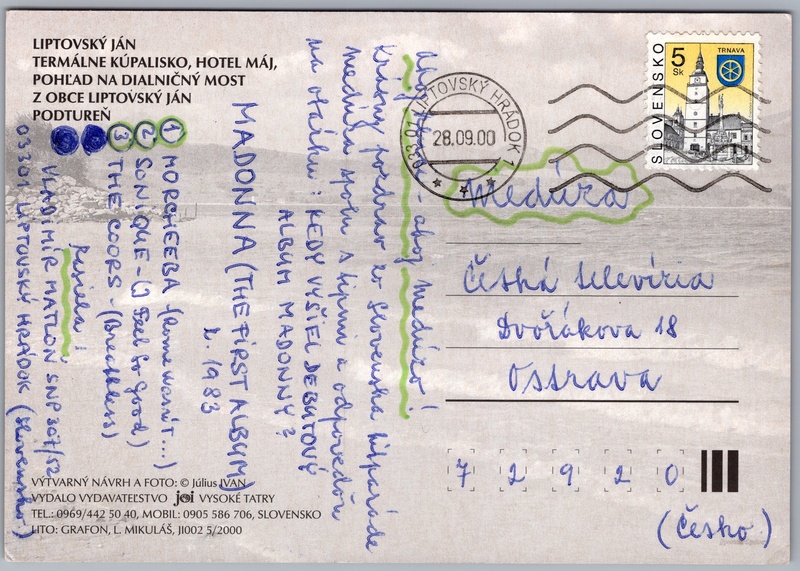 LIPTOVSKÝ JÁN
TERMÁLNE KÚPALISKO, HOTEL MÁJ,
POHĽAD NA DIALNIČNÝ MOST
Z OBCE LIPTOVSKÝ JÁN
PODTUREŇ
Ahoj - ahoj Medúzo!
Krásny pozdrav zo Slovenska hitparáde
Medúza spolu s tipmi a odpoveďou
na otázku: KEDY VYŠIEL DEBUTOVÝ
ALBUM MADONNY?
MADONNA (THE FIRST ALBUM)
r. 1983
1 MORCHEEBA - (Rome wasn't...)
2 SONIQUE - (I Feel So Good)
3 THE COORS - (Breathless)
VLADIMÍR MATLON SNP 307/12
03301 LIPTOVSKÝ HRÁDOK (Slovensko)
033 01 LIPTOVSKÝ HRÁDOK 1
28.09.00
SLOVENSKO
5 Sk
TRNAVA
Medúza
Česká televízia
Dvořákova 18
Ostrava
7 2 9 2 0
(Česko)
VÝTVARNÝ NÁVRH A FOTO: © Július IVAN
VYDALO VYDAVATEĽSTVO joi VYSOKÉ TATRY
TEL.: 0969/442 50 40, MOBIL: 0905 586 706, SLOVENSKO
LITO: GRAFON, L. MIKULÁŠ, JI002 5/2000